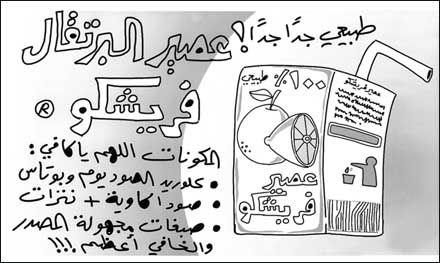 طبيعي جدًا جدًا؟
عصير البرتقال
فريشكو ®
المكونات اللهم يا كافي:
• كلوريد الصوديوم وبوتاس
• صودا كاوية + نترات
• صبغات مجهولة المصدر
والخافي أعظم!!!
١٠٠٪ طبيعي
عصير
فريشكو
عصير فريشكو